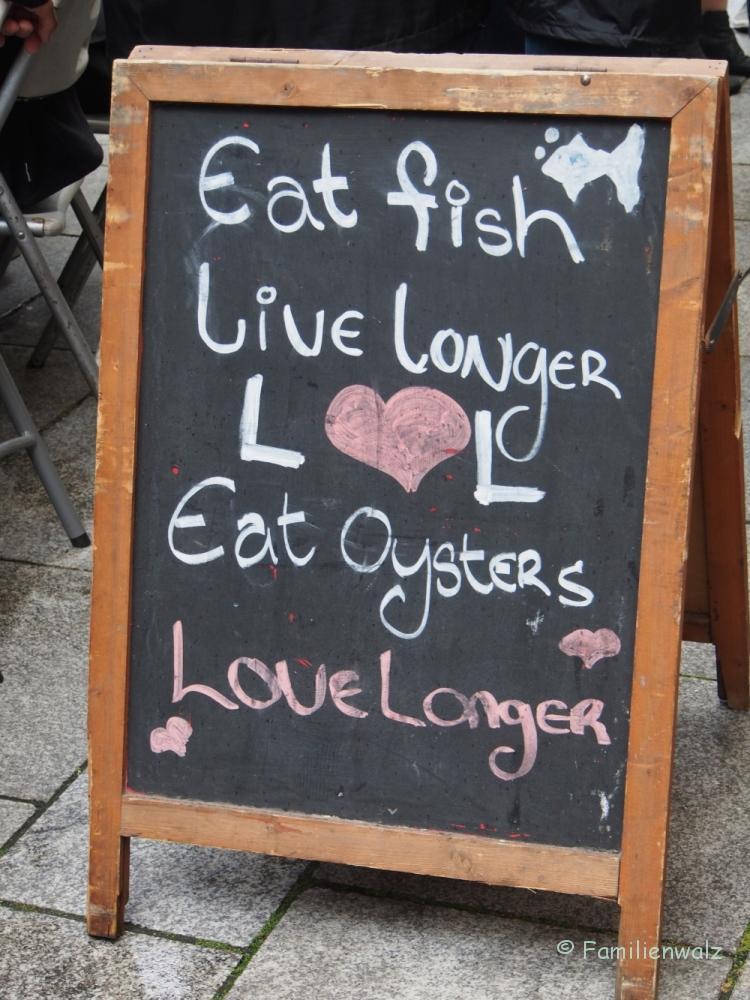 Eat fish
Live Longer
L L
Eat Oysters
Love Longer
© Familienwalz